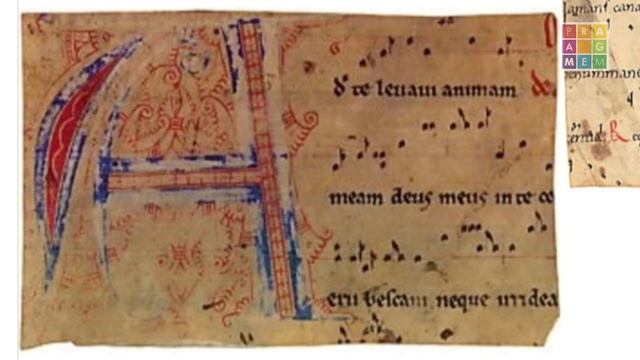 A
d te leuaui animam de
meam deus meus in te co
eru bescam neque irridea
lamant cana
P R A
A G
M E M